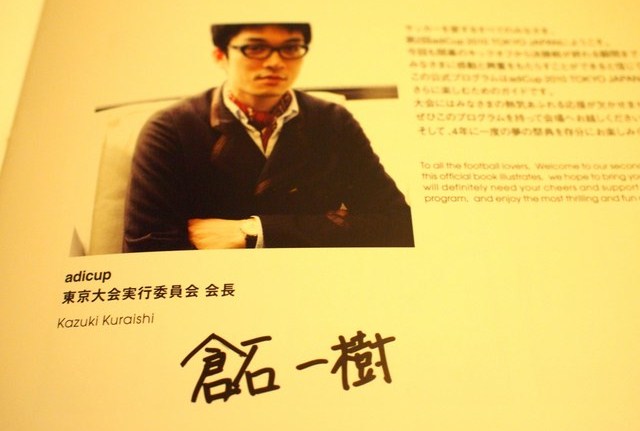 サッカーを愛するすべてのみなさま、
第2回adiCup 2010 TOKYO JAPANにようこそ。
今回も開幕のキックオフから決勝戦が終わる瞬間まで
みなさまに感動と興奮をもたらすことができると信じて
この公式プログラムはadiCup 2010 TOKYO JAPAN
さらに楽しむためのガイドです。
大会にはみなさまの熱気あふれる応援が欠かせま
ぜひこのプログラムを持って会場へお越しください
そして、4年に一度の夢の祭典を存分にお楽しみ
To all the football lovers, Welcome to our second
this official book illustrates, we hope to bring you
will definitely need your cheers and support
program, and enjoy the most thrilling and fun
adicup
東京大会実行委員会 会長
Kazuki Kuraishi
倉石一樹